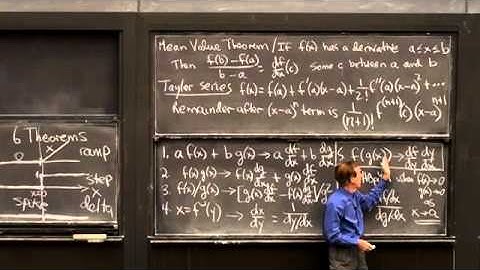 Mean Value Theorem / If f(x) has a derivative a ≤ x ≤ b
Then (f(b) - f(a))/(b - a) = df/dx (c) Some c between a and b
Taylor series f(x) = f(a) + f'(a)(x-a) + 1/2! f''(a)(x-a)² + ...
Remainder after (x-a)ⁿ term is 1/(n+1)! f⁽ⁿ⁺¹⁾(c)(x-a)ⁿ⁺¹
6 Theorems
0 x ramp
step
spike delta
1. a f(x) + b g(x) → a df/dx + b dg/dx
f(g(x)) → df/dy dy/dx
2. f(x) g(x) → f(x) dg/dx + g(x) df/dx
when f(a)=0
g(a)=0
3. f(x)/g(x) → [g df/dx - f dg/dx]/g²
4. x = f⁻¹(y) → dx/dy = 1/(dy/dx)
df/dx
dg/dx
x→a